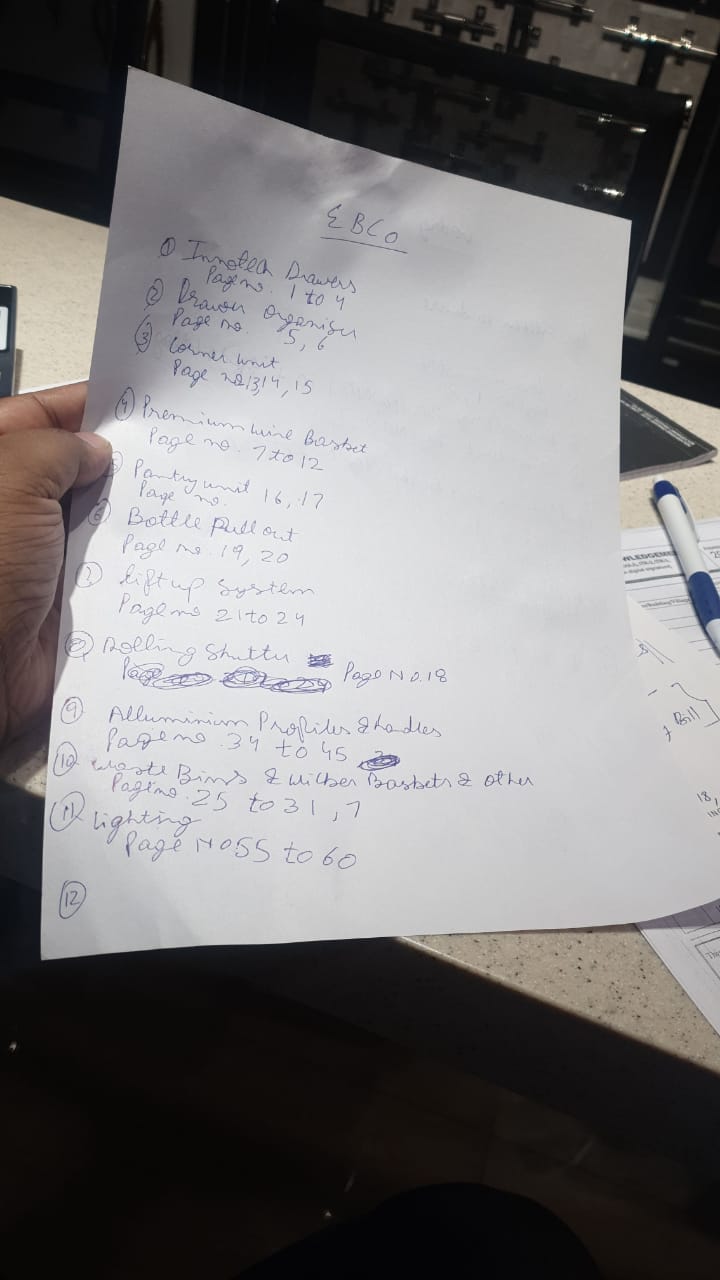 EBCO
① Innotech Drawers
Page no. 1 to 4
② Drawer Organiser
Page no. 5, 6
③ Corner unit
Page no 13,14, 15
④ Premium wire Basket
Page no. 7 to 12
5 Pantry unit
Page no. 16, 17
⑥ Bottle Pull out
Page no. 19, 20
⑦ Lift up system
Page no 21 to 24
⑧ Rolling Shutter
Page No. 18
⑨ Alluminium Profiles & handles
Page no. 34 to 45
⑩ Waste Bins & Wicker Baskets & other
Page no. 25 to 31, 7
⑪ Lighting
Page No 55 to 60
⑫
WLEDGEME
Bill
18,